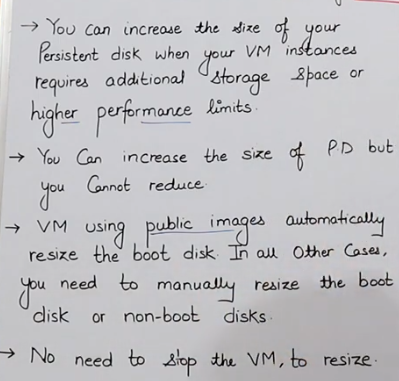 → You can increase the size of your
Persistent disk when your VM instances
requires additional storage space or
higher performance limits.
→ You Can increase the size of P.D but
you Cannot reduce.
→ VM using public images automatically
resize the boot disk. In all Other Cases,
you need to manually resize the boot
disk or non-boot disks.
→ No need to stop the VM, to resize.